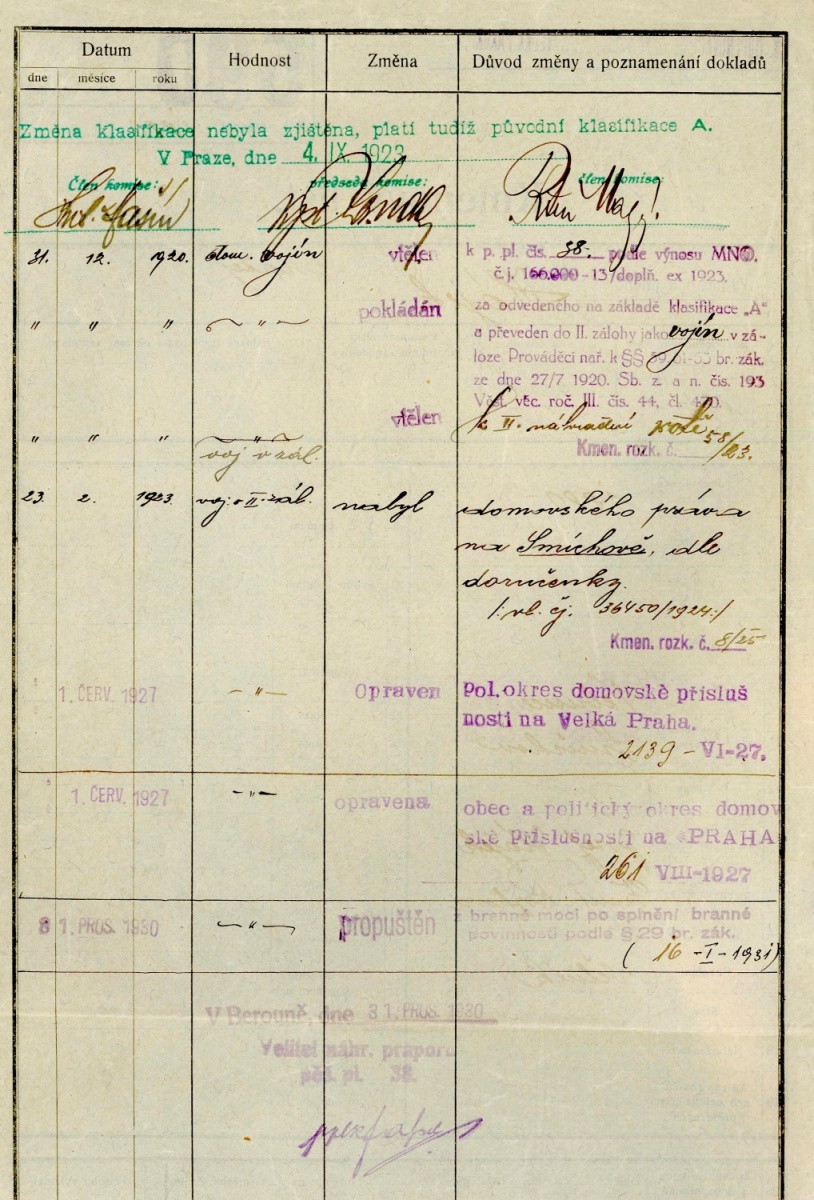 Datum
Hodnost
Změna
Důvod změny a poznamenání dokladů
dne měsíce roku
Změna klasifikace nebyla zjištěna, platí tudíž původní klasifikace A.
V Praze, dne 4. IX. 1923
Člen komise:
předseda komise:
člen komise:
31. 12. 1920. dom. vojín vtělen k p. pl. čís. 38. podle výnosu MNO.
č. j. 166.000-13/doplň. ex 1923.
" " " " pokládán za odvedeného na základě klasifikace „A"
a převeden do II. zálohy jako vojín v zá-
loze Prováděcí nař. k §§
ze dne 27/7 1920. Sb. z. a n. čís. 193
Věst. věc. roč. III. čís. 44, čl. 420.
vtělen k II. náhradní rotě
" " " "
voj. v zál.
Kmen. rozk. č. 58/23.
23. 2. 1923. voj. v II. zál. nabyl domovského práva
na Smíchově, dle
doručenky.
/: vl. čj. 36450/1924 :/
Kmen. rozk. č. 8/25
1. ČERV. 1927 - " - Opraven Pol. okres domovské přísluš
nosti na Velká Praha.
2139 - VI-27.
1. ČERV. 1927 - " - opravena obec a politický okres domov
ské příslušnosti na «PRAHA»
261 VIII-1927
31. PROS. 1930 - " - propuštěn z branné moci po splnění branné
povinnosti podle § 29 br. zák.
( 16 - I - 1931)
V Berouně, dne 31. PROS. 1930
Velitel náhr. praporu
pěš. pl. 38.